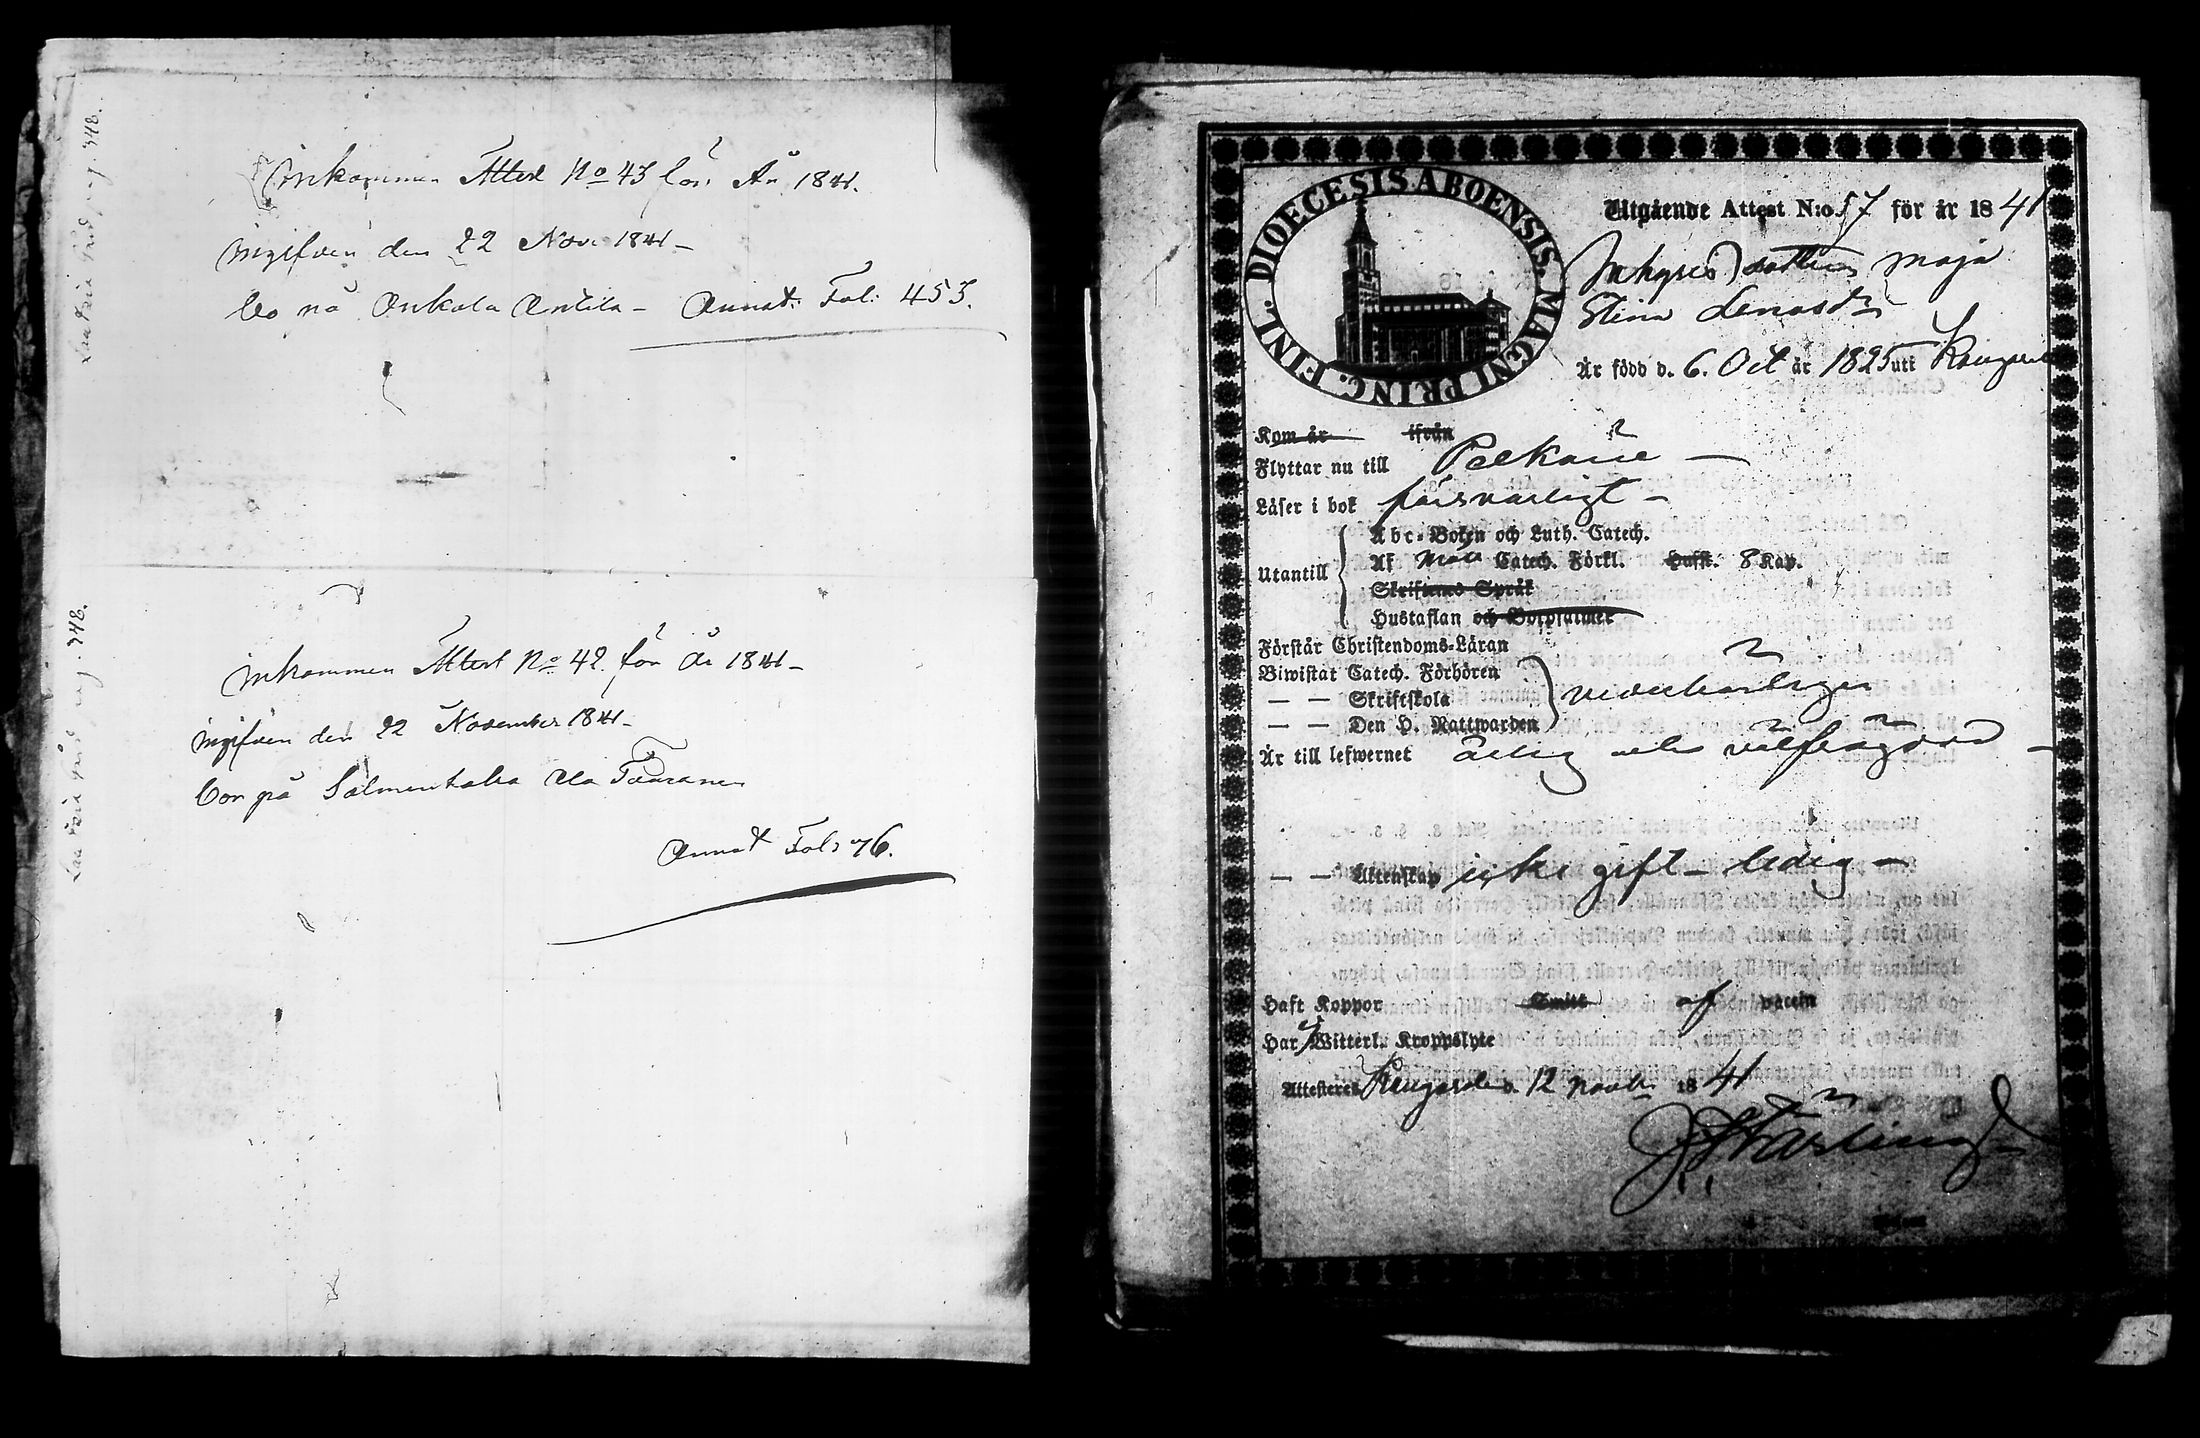 Inkommen Attest No 43 för År 1841.
ingifven den 22 Nov: 1841 –
bo på Onkala Antila – Annot: Fol: 453.
Inkommen Attest No 42 för År 1841 –
ingifven den 22 November 1841 –
bor på Salmentaka
Annot Fol: 76.
DIOECESIS ABOENSIS. MAGNI PRINC. FINL.
Utgående Attest N:o 57 för år 1841
Inhyses dottren Maja
Stina Lenasdr
Är född d. 6. Oct år 1825 uti Kangasala
Kom år ifrån
Flyttar nu till Pelkäne –
Läser i bok försvarligt –
Utantill
Abc-Boken och Luth. Catech.
Af Catech. Förkl. Husk. 8 Kap.
Skriftenes Språk
Hustaflan och Botpsalmer
Förstår Christendoms-Läran
Biwistat Catech. Förhören
— — Skriftskola
— — Den H. Nattwarden
vederbörligen
Är till lefwernet ärlig och välfrägdad –
— — Äktenskap icke gift – ledig –
Haft Koppor Smitt af vaccin
Har ej Witterl. Kroppslyte
Attesteras Kangasala d. 12 Novb: 1841